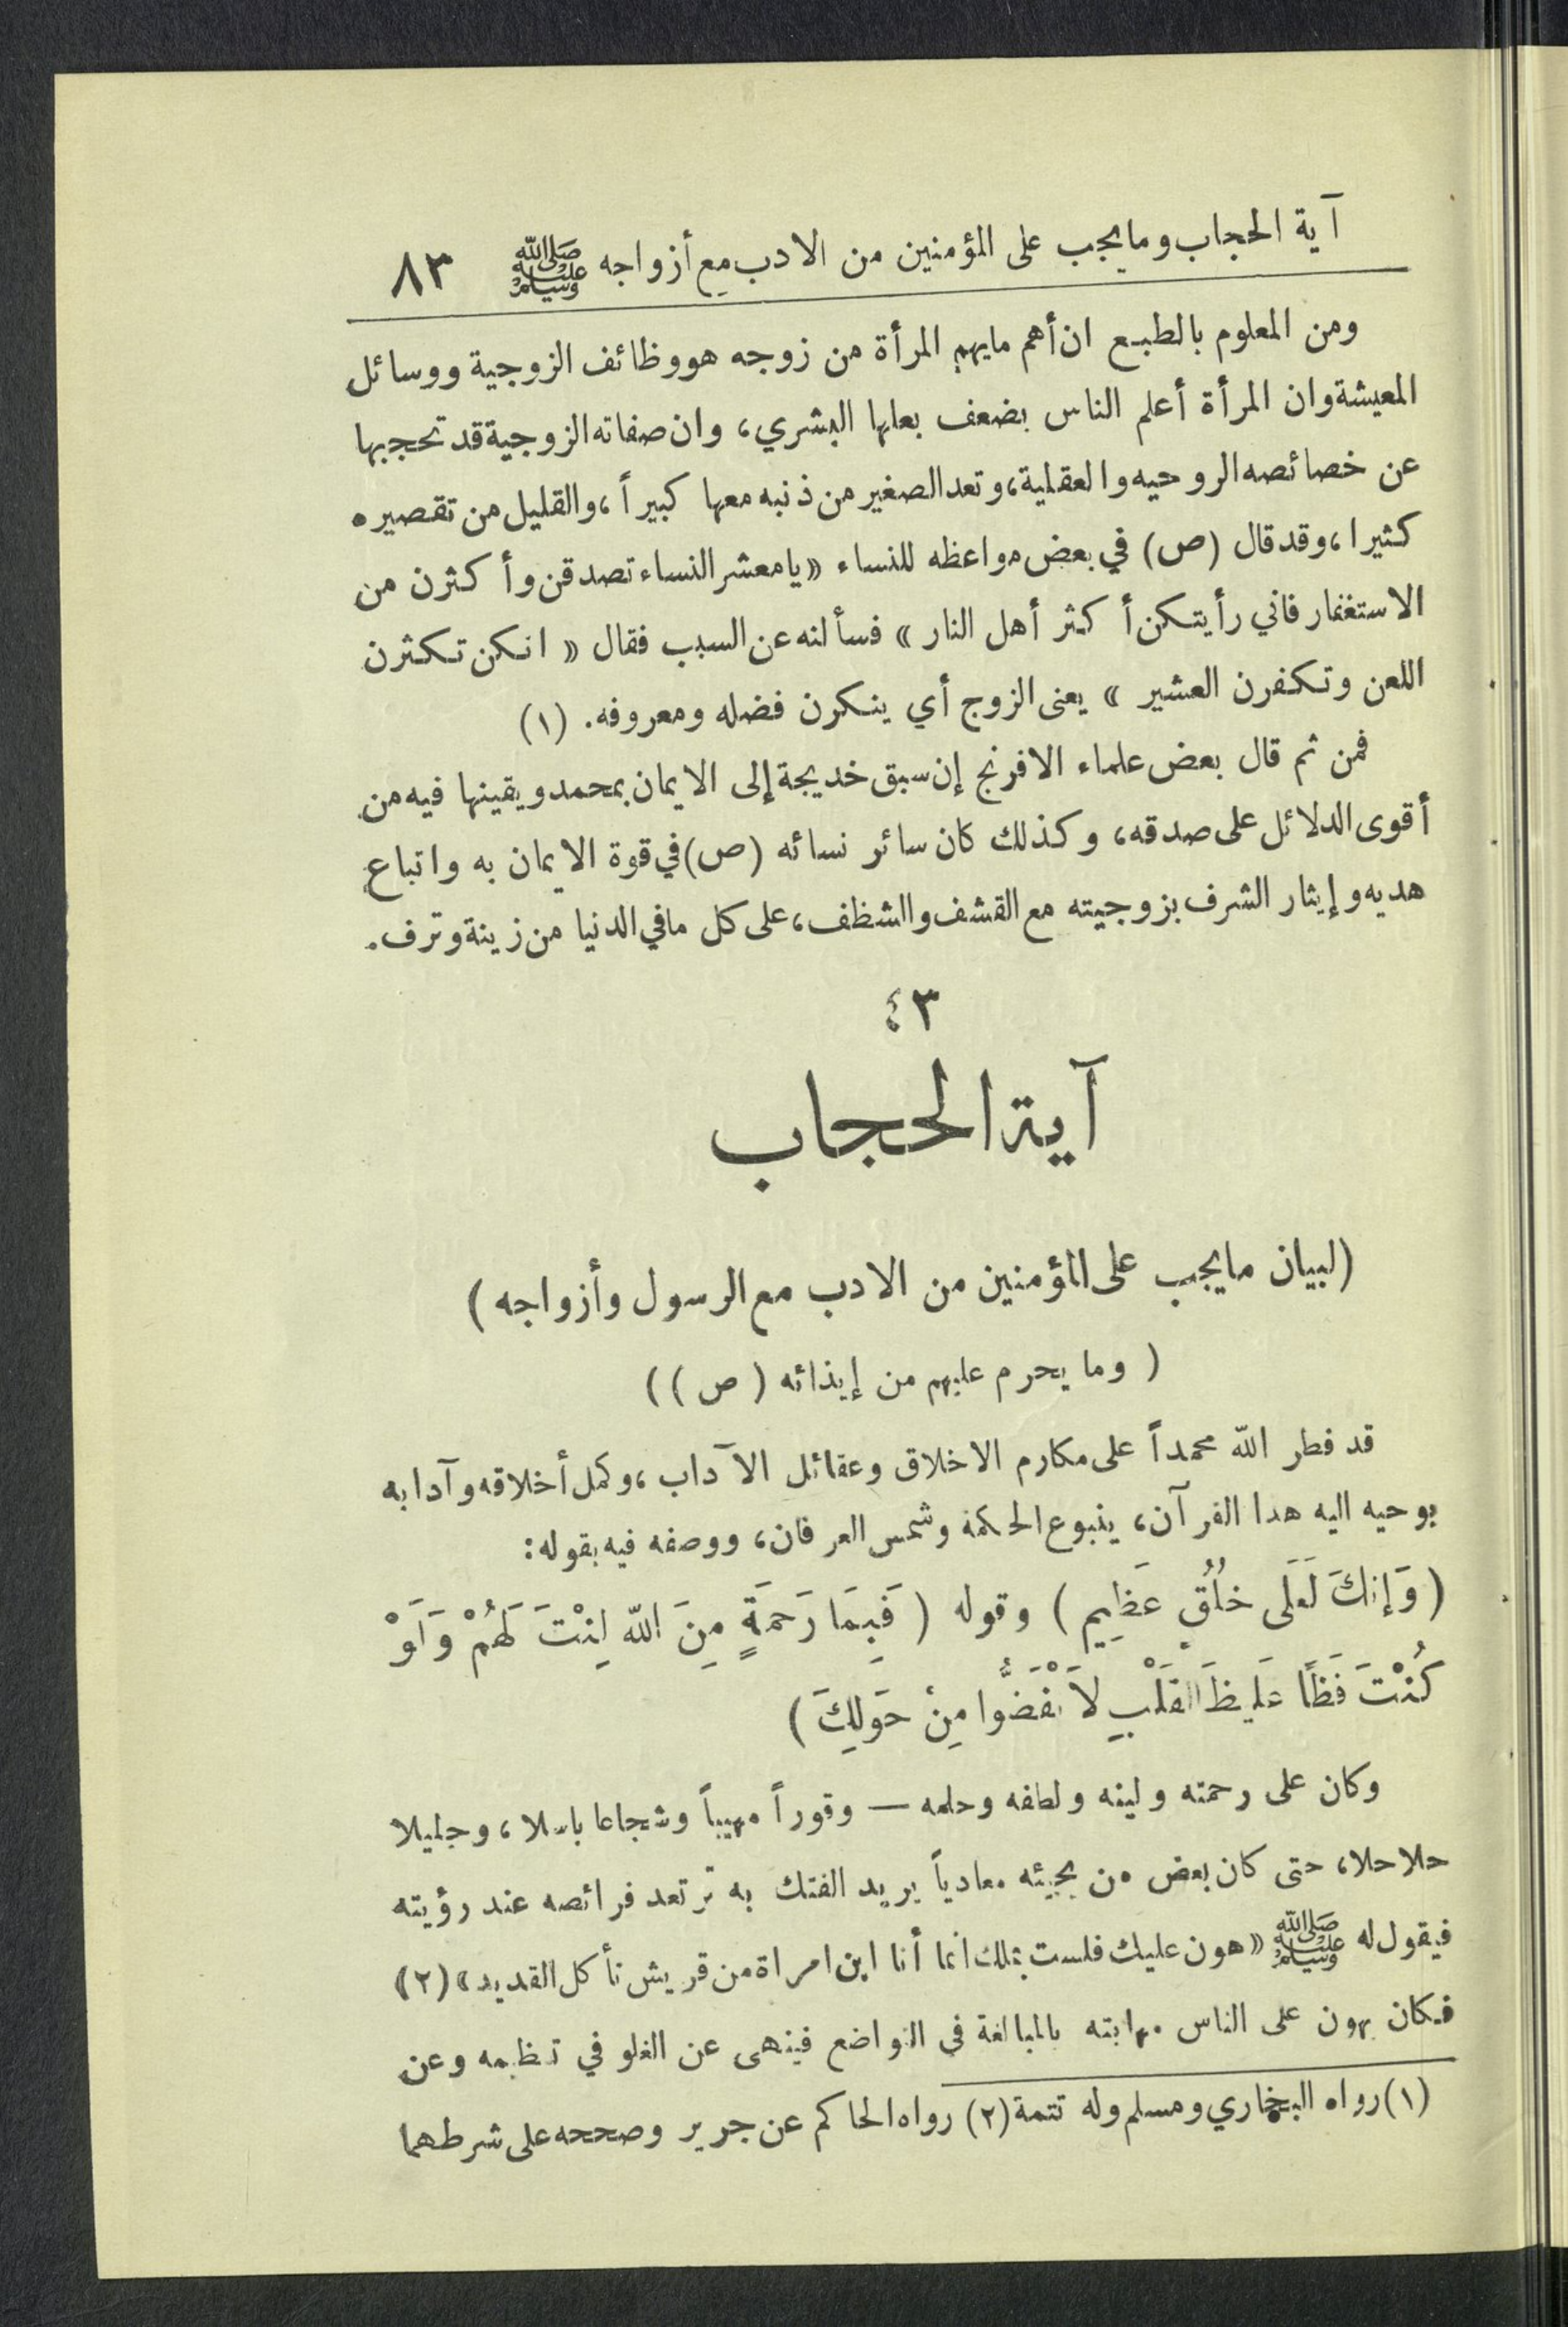 آية الحجاب وما يجب على المؤمنين من الادب مع أزواجه ﷺ ٨٣
ومن المعلوم بالطبع ان أهم ما يهم المرأة من زوجه هو وظائف الزوجية ووسائل
المعيشة وان المرأة أعلم الناس بضعف بعلها البشري، وان صفاته الزوجية قد تحجبها
عن خصائصه الروحيه والعقلية، وتعد الصغير من ذنبه معها كبيراً، والقليل من تقصيره
كثيرا، وقد قال (ص) في بعض مواعظه للنساء «يا معشر النساء تصدقن وأكثرن من
الاستغفار فاني رأيتكن أكثر أهل النار» فسألنه عن السبب فقال «انكن تكثرن
اللعن وتكفرن العشير» يعنى الزوج أي ينكرن فضله ومعروفه. (١)
فمن ثم قال بعض علماء الافرنج إن سبق خديجة إلى الايمان بمحمد ويقينها فيه من
أقوى الدلائل على صدقه، وكذلك كان سائر نسائه (ص) في قوة الايمان به واتباع
هديه وإيثار الشرف بزوجيته مع القشف والشظف، على كل ما في الدنيا من زينة وترف.
٤٣
آية الحجاب
(لبيان ما يجب على المؤمنين من الادب مع الرسول وأزواجه)
( وما يحرم عليهم من إيذائه (ص) )
قد فطر الله محمداً على مكارم الاخلاق وعقائل الآداب، وكمل أخلاقه وآدابه
بوحيه اليه هدا القرآن، ينبوع الحكمة وشمس العرفان، ووصفه فيه بقوله:
(وَإِنكَ لَعَلَى خُلُقٍ عَظِيمٍ) وقوله (فَبِمَا رَحمَةٍ مِنَ اللّه لِنْتَ لَهُمْ وَلَوْ
كُنْتَ فَظًا غَلِيظَ القَلْبِ لاَنْفَضُّوا مِنْ حَولِكَ)
وكان على رحمته ولينه ولطفه وحلمه — وقوراً مهيباً وشجاعا باسلا، وجليلا
حلاحلا، حتى كان بعض من يجيئه معادياً يريد الفتك به ترتعد فرائصه عند رؤيته
فيقول له ﷺ «هون عليك فلست بملك انما أنا ابن امراة من قريش تأكل القديد» (٢)
فكان يهون على الناس مهابته بالمبالغة في التواضع فينهى عن الغلو في تعظيمه وعن
(١) رواه البخاري ومسلم وله تتمة (٢) رواه الحاكم عن جرير وصححه على شرطهما